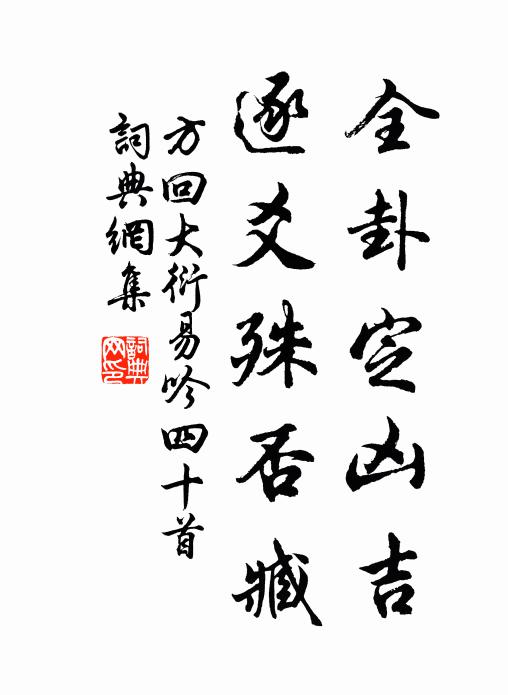 全卦定凶吉
逐爻殊否臧
方回大衍易吟四十首
詞典網集
詞典網印